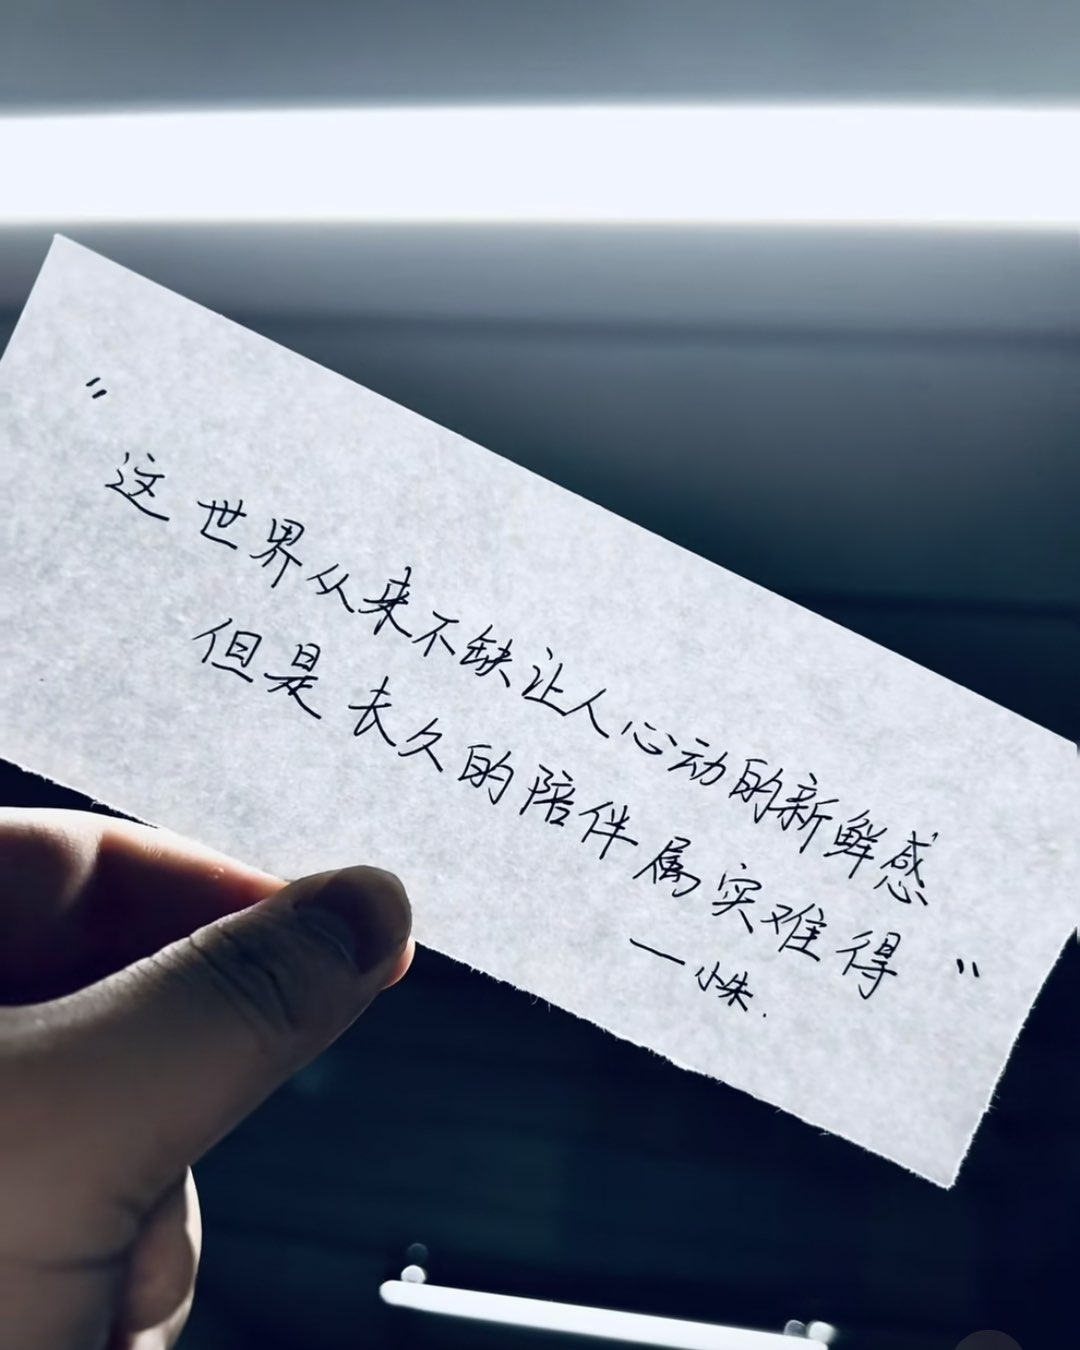 "
这世界从来不缺让人心动的新鲜感
但是长久的陪伴属实难得"
—小朱.